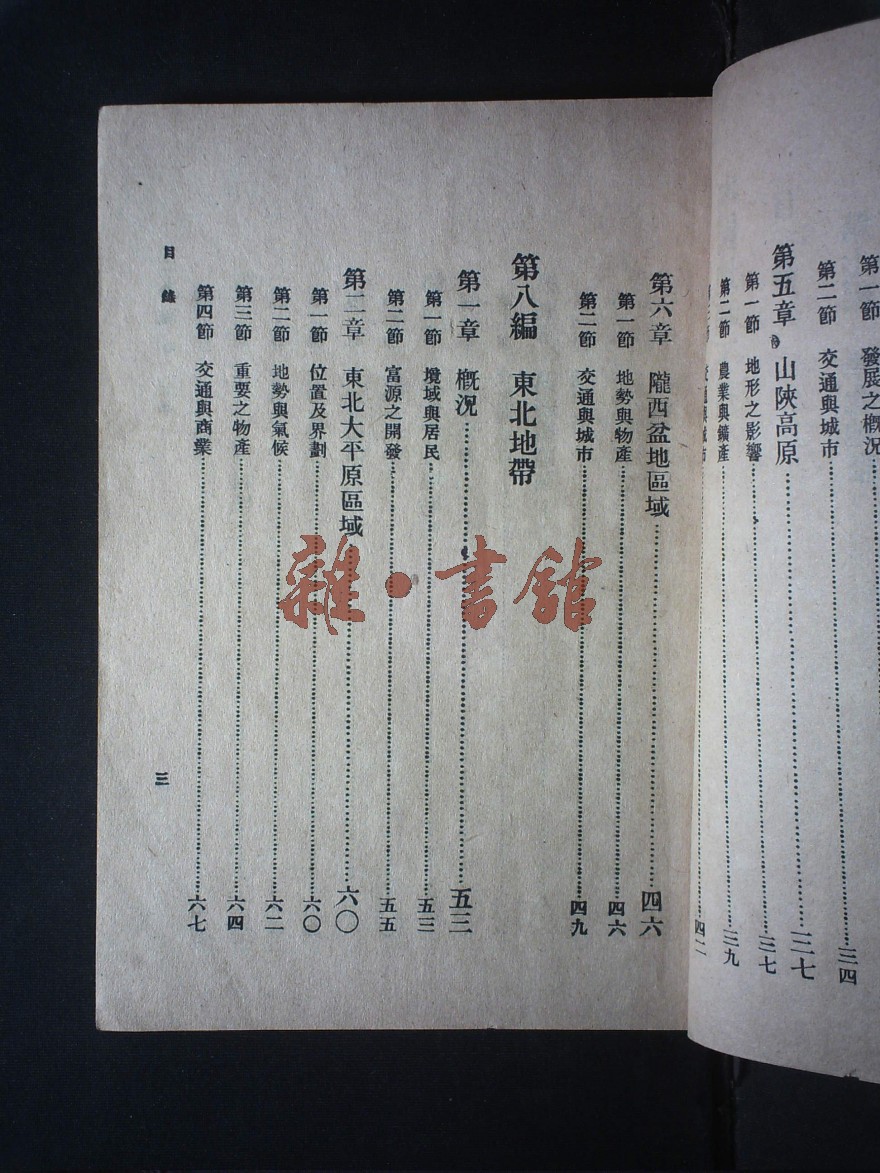 第一節 發展之槪況
第二節 交通與城市……三四
第五章 山陝高原……三七
第一節 地形之影響……三七
第二節 農業與鑛產……三九
交通與城市……四二
第六章 隴西盆地區域……四六
第一節 地勢與物產……四六
第二節 交通與城市……四九
第八編 東北地帶
第一章 槪況……五三
第一節 境域與居民……五三
第二節 富源之開發……五五
第二章 東北大平原區域……六〇
第一節 位置及界劃……六〇
第二節 地勢與氣候……六二
第三節 重要之物產……六四
第四節 交通與商業……六七
目錄
三
雜·書館